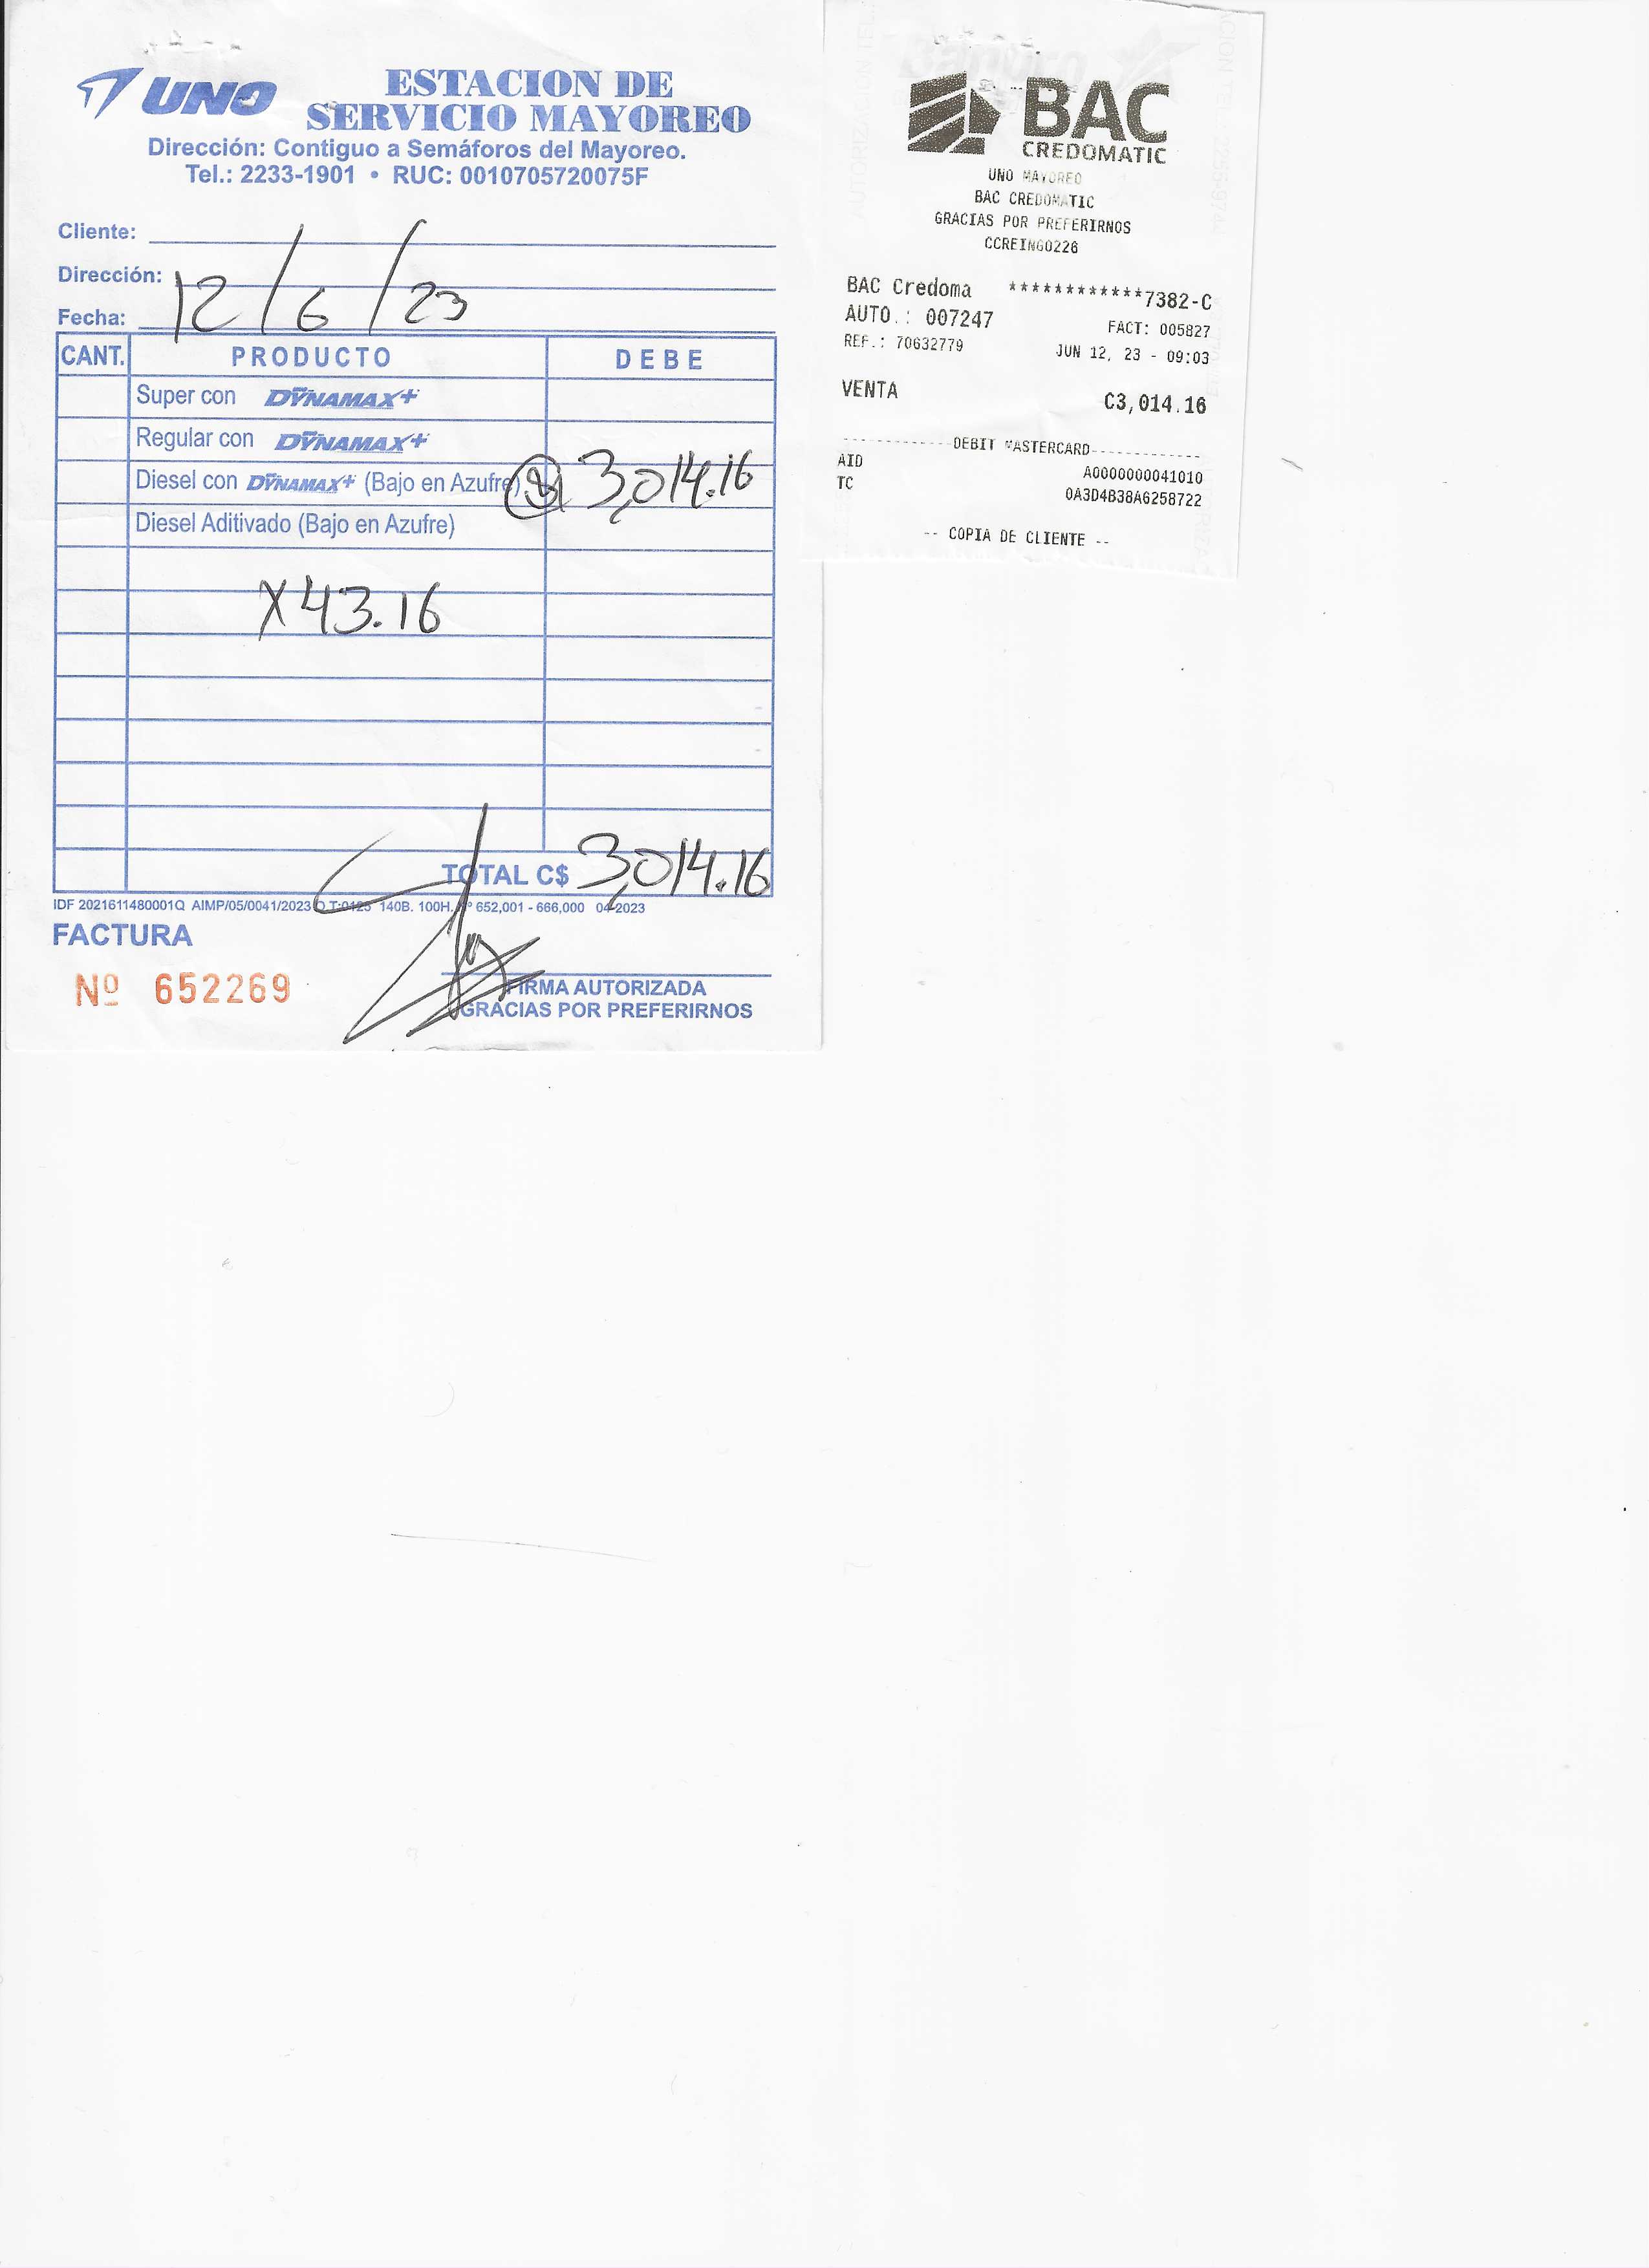 UNO
ESTACION DE
SERVICIO MAYOREO
Dirección: Contiguo a Semáforos del Mayoreo.
Tel.: 2233-1901 • RUC: 0010705720075F
Cliente:
Dirección:
Fecha: 12/6/23
CANT. PRODUCTO DEBE
Super con DYNAMAX+
Regular con DYNAMAX+
Diesel con DYNAMAX+ (Bajo en Azufre) 3,014.16
Diesel Aditivado (Bajo en Azufre)
X43.16
TOTAL C$ 3,014.16
IDF 2021611480001Q AIMP/05/0041/2023 O.T:0425 140B. 100H. Nº 652,001 - 666,000 04-2023
FACTURA
Nº 652269
FIRMA AUTORIZADA
GRACIAS POR PREFERIRNOS
BAC
CREDOMATIC
UNO MAYOREO
BAC CREDOMATIC
GRACIAS POR PREFERIRNOS
CCREING0226
BAC Credoma ************7382-C
AUTO.: 007247 FACT: 005827
REF.: 70632779 JUN 12, 23 - 09:03
VENTA C3,014.16
------------DEBIT MASTERCARD------------
AID A0000000041010
TC 0A3D4B38A6258722
-- COPIA DE CLIENTE --